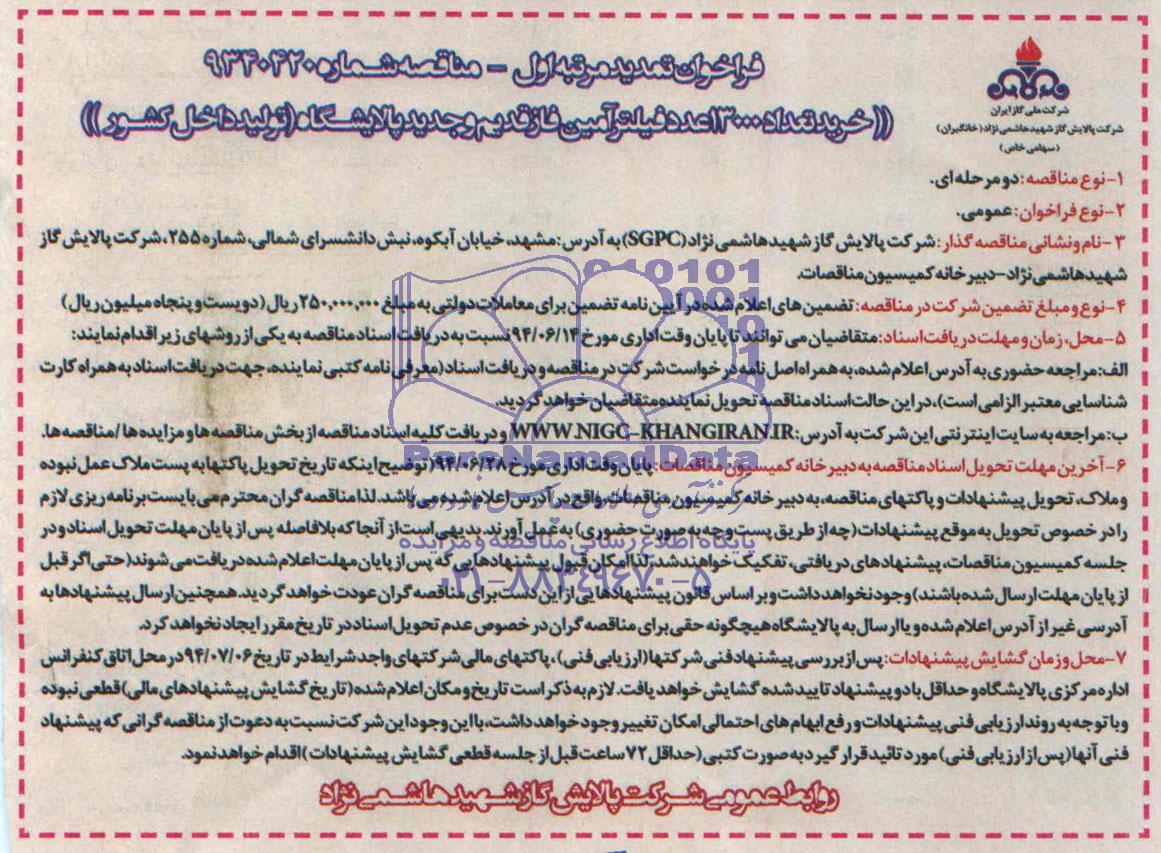 شرکت ملی گاز ایران
شرکت پالایش گاز شهید هاشمی نژاد (خانگیران)
(سهامی خاص)
فراخوان تمدید مرتبه اول - مناقصه شماره 9340420
((خرید تعداد 13000 عدد فیلتر آمین فاز قدیم و جدید پالایشگاه (تولید داخل کشور))
1-نوع مناقصه: دو مرحله ای.
2-نوع فراخوان: عمومی.
3-نام و نشانی مناقصه گذار: شرکت پالایش گاز شهید هاشمی نژاد (SGPC) به آدرس: مشهد، خیابان آبکوه، نبش دانشسرای شمالی، شماره 255، شرکت پالایش گاز
شهید هاشمی نژاد-دبیرخانه کمیسیون مناقصات.
4-نوع و مبلغ تضمین شرکت در مناقصه: تضمین های اعلام شده در آیین نامه تضمین برای معاملات دولتی به مبلغ 250,000,000 ریال (دویست و پنجاه میلیون ریال)
5-محل، زمان و مهلت دریافت اسناد: متقاضیان می توانند تا پایان وقت اداری مورخ 94/06/14 نسبت به دریافت اسناد مناقصه به یکی از روشهای زیر اقدام نمایند:
الف: مراجعه حضوری به آدرس اعلام شده، به همراه اصل نامه درخواست شرکت در مناقصه و دریافت اسناد (معرفی نامه کتبی نماینده، جهت دریافت اسناد به همراه کارت
شناسایی معتبر الزامی است)، در این حالت اسناد مناقصه تحویل نماینده متقاضیان خواهد گردید.
ب: مراجعه به سایت اینترنتی این شرکت به آدرس: WWW.NIGC-KHANGIRAN.IR و دریافت کلیه اسناد مناقصه از بخش مناقصه ها و مزایده ها / مناقصه ها.
6-آخرین مهلت تحویل اسناد مناقصه به دبیرخانه کمیسیون مناقصات: پایان وقت اداری مورخ 94/06/28 (توضیح اینکه تاریخ تحویل پاکتها به پست ملاک عمل نبوده
و ملاک، تحویل پیشنهادات و پاکتهای مناقصه، به دبیرخانه کمیسیون مناقصات واقع در آدرس اعلام شده می باشد. لذا مناقصه گران محترم می بایست برنامه ریزی لازم
را در خصوص تحویل به موقع پیشنهادات (چه از طریق پست و چه به صورت حضوری) به عمل آورند. بدیهی است از آنجا که بلافاصله پس از پایان مهلت تحویل اسناد و در
جلسه کمیسیون مناقصات، پیشنهادهای دریافتی، تفکیک خواهند شد، لذا امکان قبول پیشنهادهایی که پس از پایان مهلت اعلام شده دریافت می شوند (حتی اگر قبل
از پایان مهلت ارسال شده باشند) وجود نخواهد داشت و بر اساس قانون پیشنهادهایی از این دست برای مناقصه گران عودت خواهد گردید. همچنین ارسال پیشنهادها به
آدرسی غیر از آدرس اعلام شده و یا ارسال به پالایشگاه هیچگونه حقی برای مناقصه گران در خصوص عدم تحویل اسناد در تاریخ مقرر ایجاد نخواهد کرد.
7-محل و زمان گشایش پیشنهادات: پس از بررسی پیشنهاد فنی شرکتها (ارزیابی فنی)، پاکتهای مالی شرکتهای واجد شرایط در تاریخ 94/07/06 در محل اتاق کنفرانس
اداره مرکزی پالایشگاه و حداقل با دو پیشنهاد تایید شده گشایش خواهد یافت. لازم به ذکر است تاریخ و مکان اعلام شده (تاریخ گشایش پیشنهادهای مالی) قطعی نبوده
و با توجه به روند ارزیابی فنی پیشنهادات و رفع ابهام های احتمالی امکان تغییر وجود خواهد داشت، با این وجود این شرکت نسبت به دعوت از مناقصه گرانی که پیشنهاد
فنی آنها (پس از ارزیابی فنی) مورد تائید قرار گیرد به صورت کتبی (حداقل 72 ساعت قبل از جلسه قطعی گشایش پیشنهادات) اقدام خواهد نمود.
روابط عمومی شرکت پالایش گاز شهید هاشمی نژاد
ParsNamadData
پایگاه اطلاع رسانی مناقصه و مزایده
۰۲۱-۸۸۳۴۹۶۷۰-۵